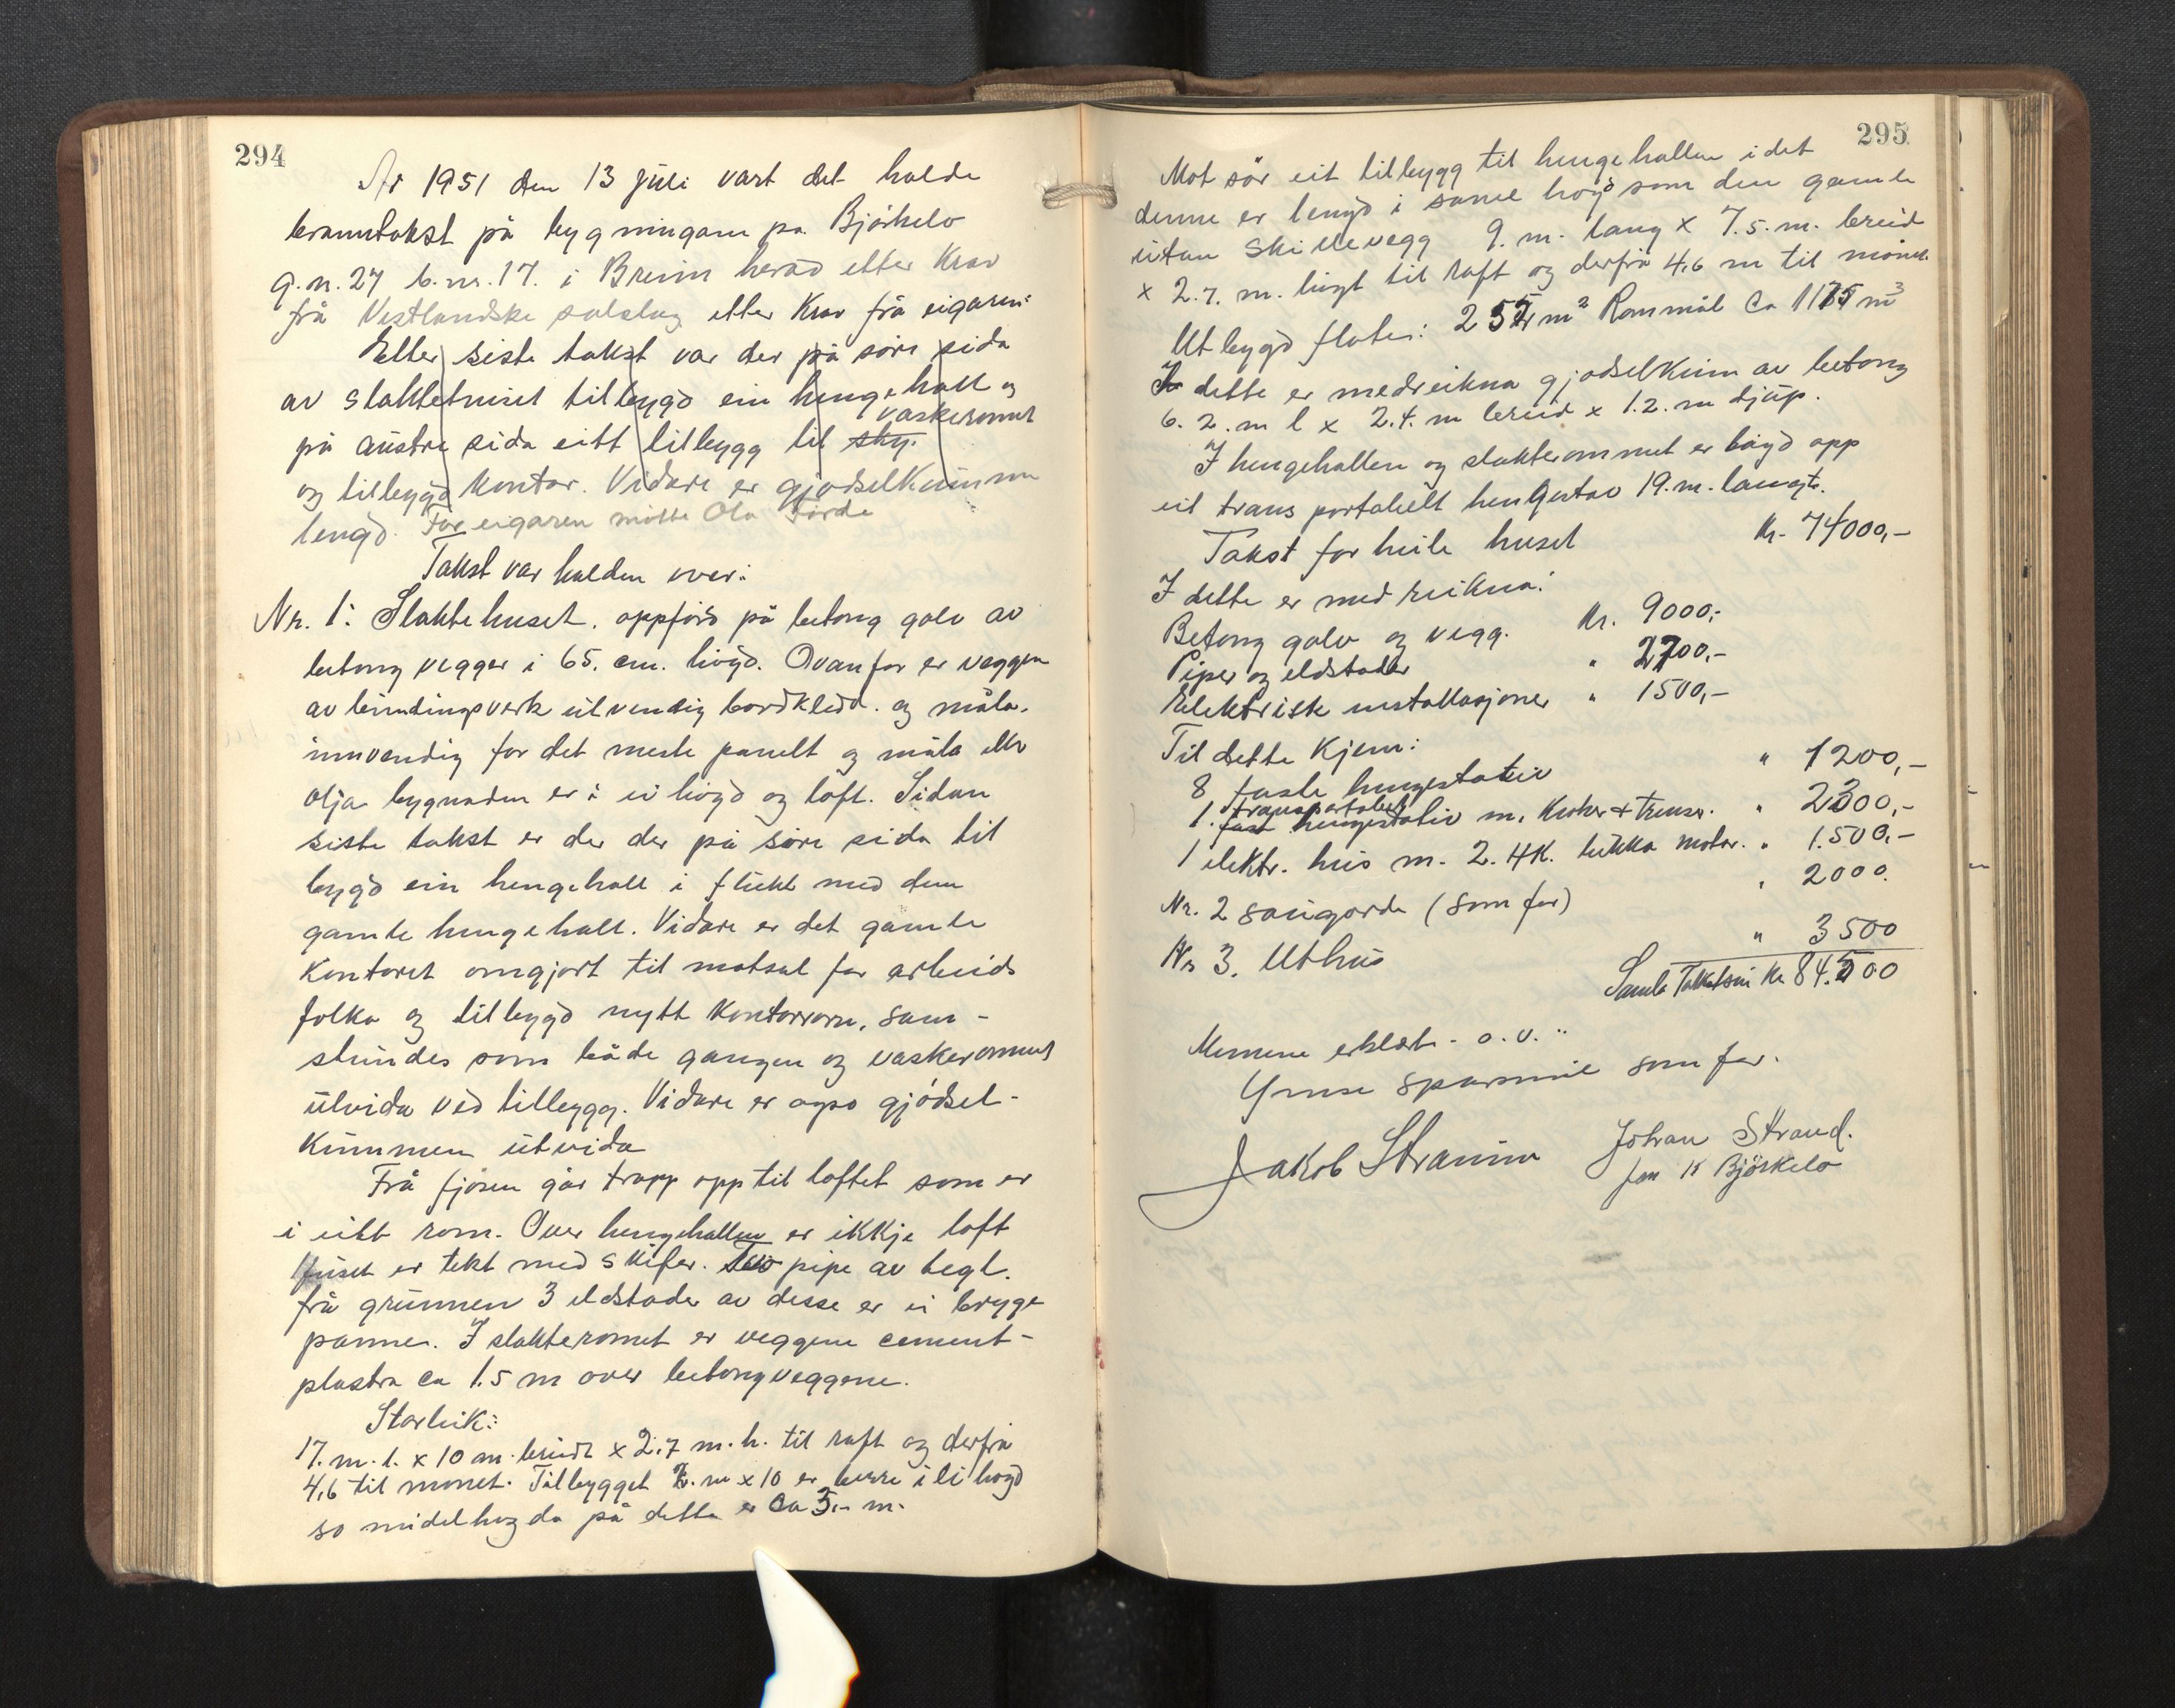 294
År 1951 den 13 juli vart det halde
branntakst på bygningane på Bjørkelo
g.n. 27 b.nr. 17. i Breim herad etter krav
frå Vestlandske salslag etter krav frå eigaren:
Etter siste takst var der på søre sida
av slaktehuset tilbygd ein hengehall og
vaskeromet
på austre sida eitt tilbygg til
og tilbygd kontor. Vidare er gjødselkummen
lengd. For eigaren møtte Ola Førde
Takst var halden over:
Nr. 1: Slaktehuset. oppførd på betong golv av
betong vegger i 65. cm. høgd. Ovanfor er veggen
av bindingsverk utvendig bordkledd. og måla.
innvendig for det meste panelt og måla eller
olja bygnaden er i ei høgd og loft. Sidan
siste takst er der der på søre sida til
bygd ein hengehall i flukt med den
gamle hengehall. Vidare er det gamle
kontoret omgjort til matsal for arbeids
folka og tilbygd nytt kontorrom, sam-
stundes som både gangen og vaskeromet
utvida ved tilbygg. Vidare er ogso gjødsel-
kummen utvida
Frå fjøsen går trapp opp til loftet som er
i eitt rom. Over hengehallen er ikkje loft
Huset er tekt med skifer. Two pipe av tegl.
frå grunnen 3 eldstader av desse er ei brygge
panne. I slakteromet er veggene cement-
plastra ca 1.5 m over betongveggene.
Storleik:
17. m. l. x 10 m. breidt x 2,7 m. h. til raft og derfrå
4,6 til mønet. Tilbygget 2. m x 10 er berre i ei høgd
so midelhøgda på detta er ca 3,- m.
295
Mot sør eit tilbygg til hengehallen i det
denne er lengd i same høgd som den gamle
utan skillevegg 9. m. lang x 7.5. m. breid
x 2.7. m. høgt til raft og derfrå 4,6 m til mønet.
Utbygd flate: 255 m² Rommål ca 1175 m³
I dette er medreikna gjødselkum av betong
6. 2. m l x 2.4. m breid x 1.2. m djup.
I hengehallen og slakterommet er bygd opp
eit transportabelt hengestav 19. m. langt.
Takst for heile huset kr. 74000,-
I dette er med reikna:
Betong golv og vegg. kr. 9000,-
Piper og eldstader " 2700,-
Elektriske installasjoner " 1500,-
Til dette kjem:
8 faste hengestativ " 1200,-
transportabelt
1. fast hengestativ m. kroker + trinser. " 2300,-
1 elektr. heis m. 2. HK. motor. " 1.500,-
Nr. 2 saugarde (som før) " 2000.
Nr 3. Uthus " 3500
Samla Takstsum kr 84.500
Mennene erklærte - o.v.
Ymse spørsmål som før.
Jakob Straume
Johan Strand.
Jon K Bjørkelo